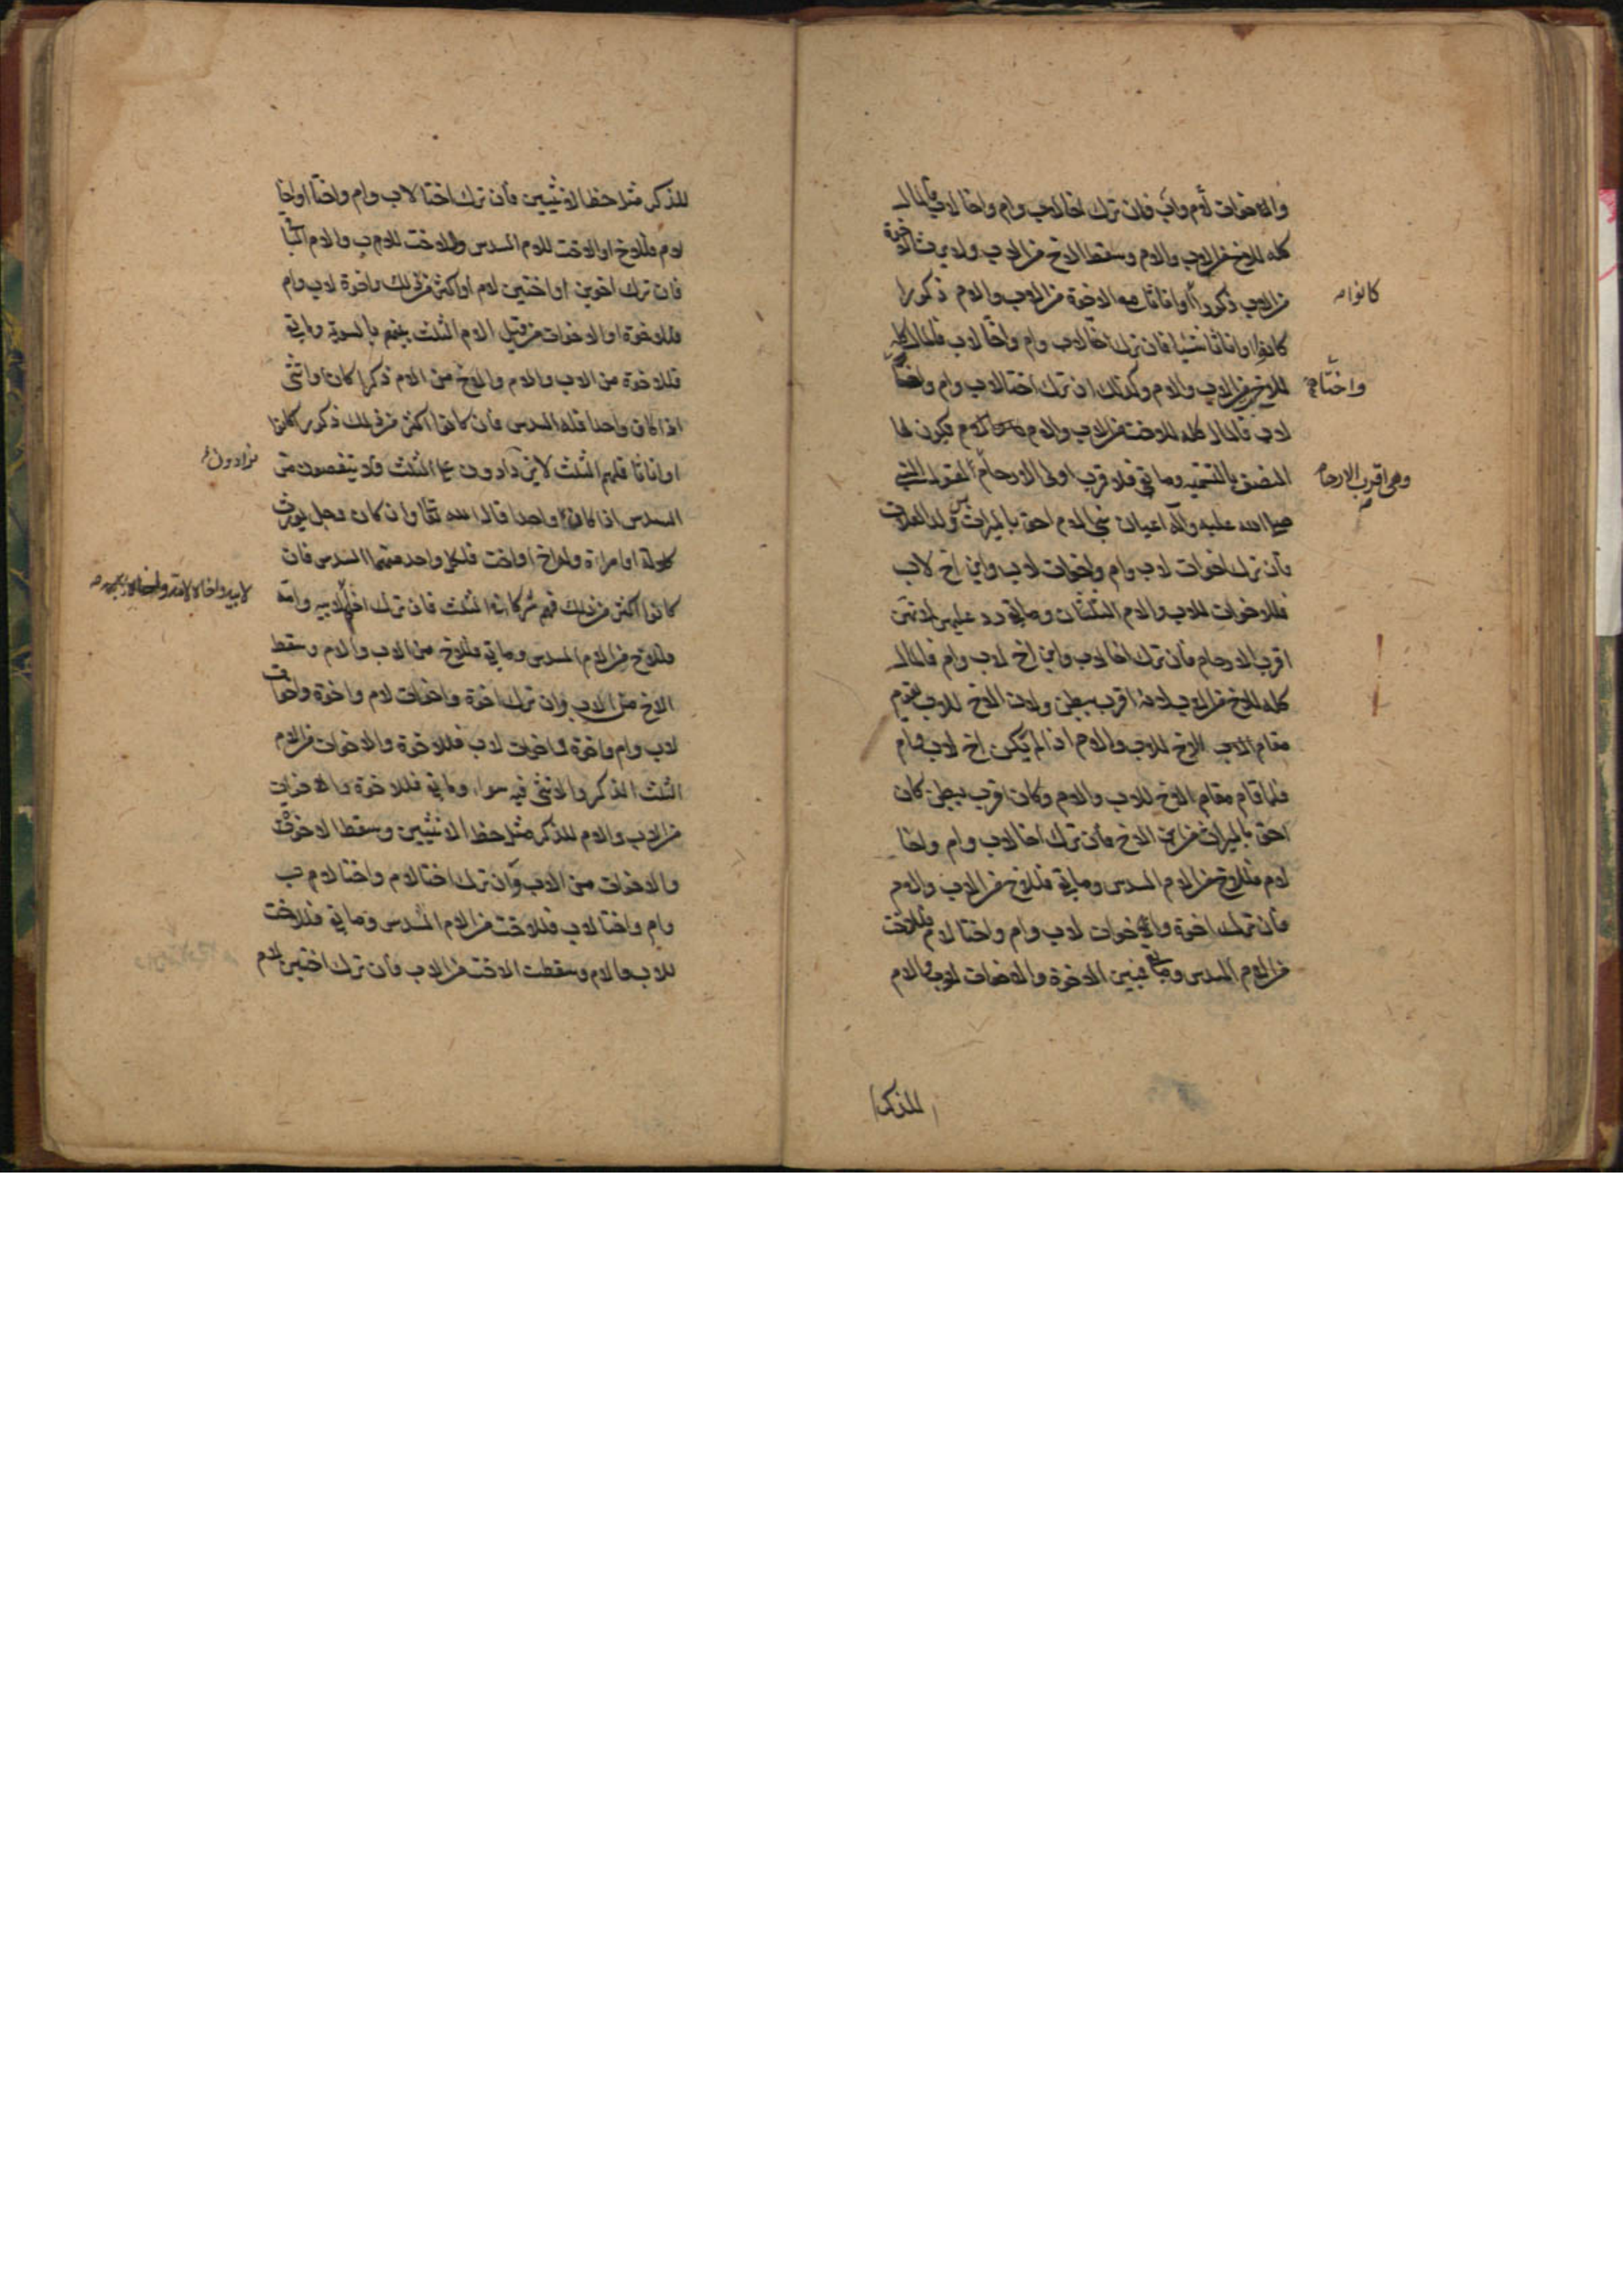 والاخوات لام واب فان ترك اخا لاب وام واخا لاب فالمال
كله للاخ من الاب والام وسقط الاخ من الاب ولا يرث الاخوة
من الاب ذكورا او اناثا مع الاخوة من الاب والام ذكورا
كانوا
كانوا او اناثا شيئا فان ترك اخا لاب وام واختا لاب فالمال كله
للاخ من الاب والام وكذلك ان ترك اختا لاب وام واختا
واختا
لاب فالمال كله للاخت من الاب والام يكون لها
النصف بالتسمية وما بقي فلا قرب اولى الارحام لقول النبي
وهي اقرب الارحام
صلى الله عليه وآله اعيان بني الام احق بالميراث من ولد العلات
فان ترك اخوات لاب وام واخوات لاب وابن اخ لاب
فللاخوات للاب والام الثلثان وما بقي رد عليهن لانهن
اقرب الارحام فان ترك اخا لاب وابن اخ لاب وام فالمال
كله للاخ من الاب لانه اقرب ببطن ولان الاخ للاب يقوم
مقام الاخ للاب والام اذا لم يكن اخ لاب وام
فلما قام مقام الاخ للاب والام وكان اقرب ببطن كان
احق بالميراث من ابن الاخ فان ترك اخا لاب وام واخا
لام فللاخ من الام السدس وما بقي فللاخ من الاب والام
فان ترك اخوة واخوات لاب وام واختا لام فللاخت
من الام السدس وما بقي فبين الاخوة والاخوات لاب والام
للذكر
للذكر مثل حظ الانثيين فان ترك اختا لاب وام واختا او اخا
لام فللاخ او الاخت للام السدس وللاخت للاب والام الباقي
فان ترك اخوين او اختين لام او اكثر من ذلك واخوة لاب وام
فللاخوة او الاخوات من قبل الام الثلث بينهم بالسوية وما بقي
فللاخوة من الاب والام والاخ من الام ذكرا كان او انثى
اذا كان واحدا فله السدس فان كانوا اكثر من ذلك ذكورا كانوا
او اناثا فلهم الثلث لا يزادون على الثلث ولا ينقصون من
يزادون
السدس اذا كان واحدا قال الله تعالى وان كان رجل يورث
كلالة او امراة وله اخ او اخت فلكل واحد منهما السدس فان
كانوا اكثر من ذلك فهم شركاء في الثلث فان ترك اخا لابيه وامه
فللاخ من الام السدس وما بقي فللاخ من الاب والام وسقط
الاخ من الاب وان ترك اخوة واخوات لام واخوة واخوات
لاب وام واخوة واخوات لاب فللاخوة والاخوات من الام
الثلث الذكر والانثى فيه سواء وما بقي فللاخوة والاخوات
من الاب والام للذكر مثل حظ الانثيين وسقط الاخوة
والاخوات من الاب وان ترك اختا لام واختا لاب
وام واختا لاب فللاخت من الام السدس وما بقي فللاخت
للاب والام وسقطت الاخت من الاب فان ترك اختين لام